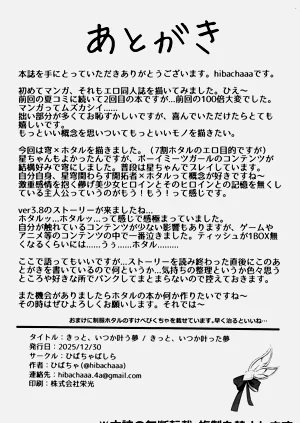 あとがき
本誌を手にとっていただきありがとうございます。hibachaaaです。
初めてマンガ、それもエロ同人誌を描いてみました。ひえ〜
前回の夏コミに続いて2回目の本ですが...前回の100倍大変でした。
マンガってムズカシイ......
拙い部分が多くてお恥ずかしいですが、喜んでいただけたらとても
嬉しいです。
もっといい概念を思いついてもっといいモノを描きたい。
今回は穹×ホタルを描きました。（7割ホタルのエロ目的ですが）
星ちゃんもよかったんですが、ボーイミーツガールのコンテンツが
結構好みでして...普段は星ちゃんでスレイしています。
自分自身、星穹関わらず開拓者×ホタルって概念が好きですね〜
激重感情を抱く儚げ美少女ヒロインとそのヒロインとの記憶を無くし
ている主人公っていうのがもう！もう！って感じです。
ver3.8のストーリーが来ましたね...
ホタルッ...ホタルッ...って感じで感極まっていました。
自分が触れているコンテンツが少ない影響もありますが、ゲームや
アニメ等のコンテンツの中で一番泣きました。ティッシュが1BOX無
くなるくらいには......うぅ......ホタル.........
ここで語ってもいいですが...ストーリーを読み終わった直後にこのあ
とがきを書いているので何というか...気持ちの整理というか色々思う
ところや好きな所でパンクしてまとまらないので控えておきます。
また機会がありましたらホタルの本か何か作りたいですね〜
その時はぜひよろしくお願いします。それでは〜
おまけに制服ホタルのすけべぴくちゃを載せています。早く治るといいね...
タイトル：きっと、いつか叶う夢 / きっと、いつか叶った夢
発行日：2025/12/30
サークル：ひばちゃばしら
作者：ひばちゃ(@hibachaaa)
連絡先：hibachaaa.4a@gmail.com
印刷：株式会社栄光